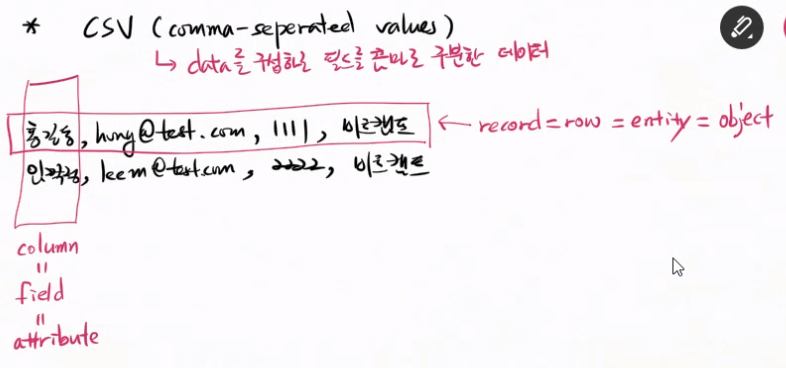 * CSV (comma-seperated values)
↳ data를 구성하는 필드를 콤마로 구분한 데이터
홍길동, hong@test.com, 1111, 비트캠프 ← record = row = entity = object
임꺽정, leem@test.com, 2222, 비트캠프
column
=
field
=
attribute